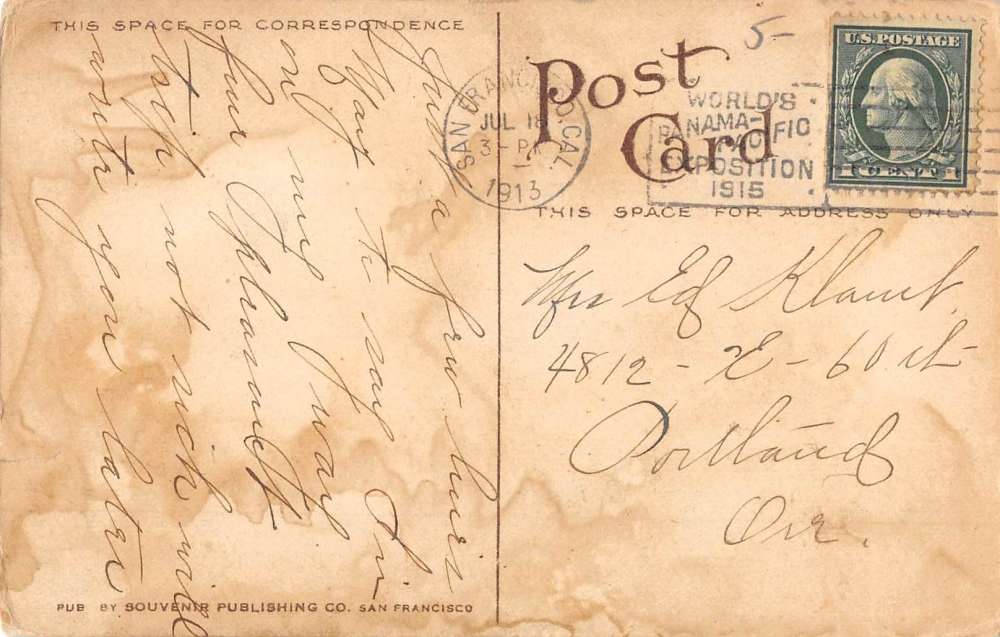 THIS SPACE FOR CORRESPONDENCE
Just a few lines
Mary to say I'm
on my way
pleasant
trip not sick will
write you later
PUB BY SOUVENIR PUBLISHING CO. SAN FRANCISCO
Post Card
THIS SPACE FOR ADDRESS ONLY
5-
SAN FRANCISCO, CAL.
JUL 18
3-PM
1913
WORLD'S
PANAMA-
PACIFIC
EXPOSITION
1915
U.S. POSTAGE
1 CENT 1
Mrs Ed
4812 - E - 60 st
Portland
Ore.